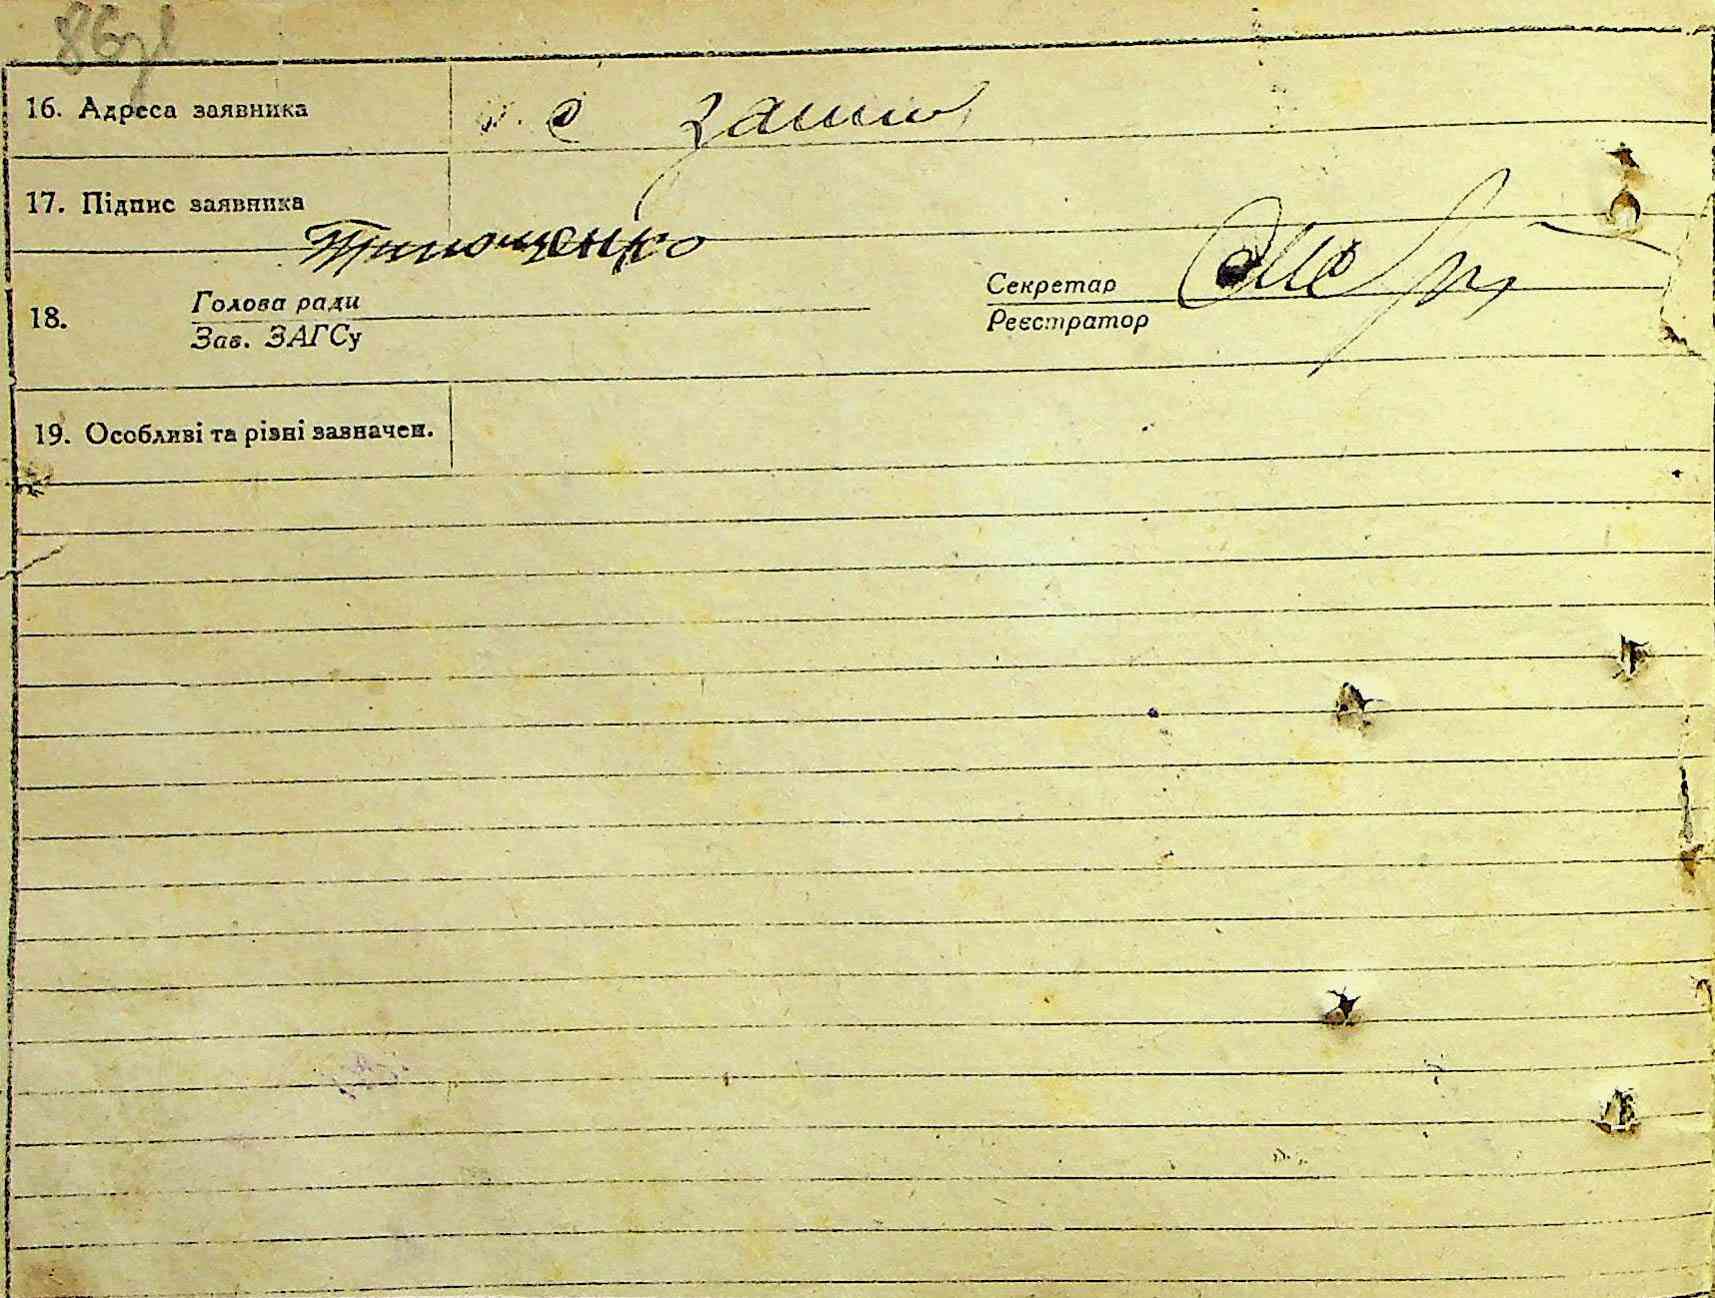 16. Адреса заявника с
17. Підпис заявника
Тимошенко
18. Голова ради Секретар
Зав. ЗАГСу Реєстратор
19. Особливі та різні зазначен.